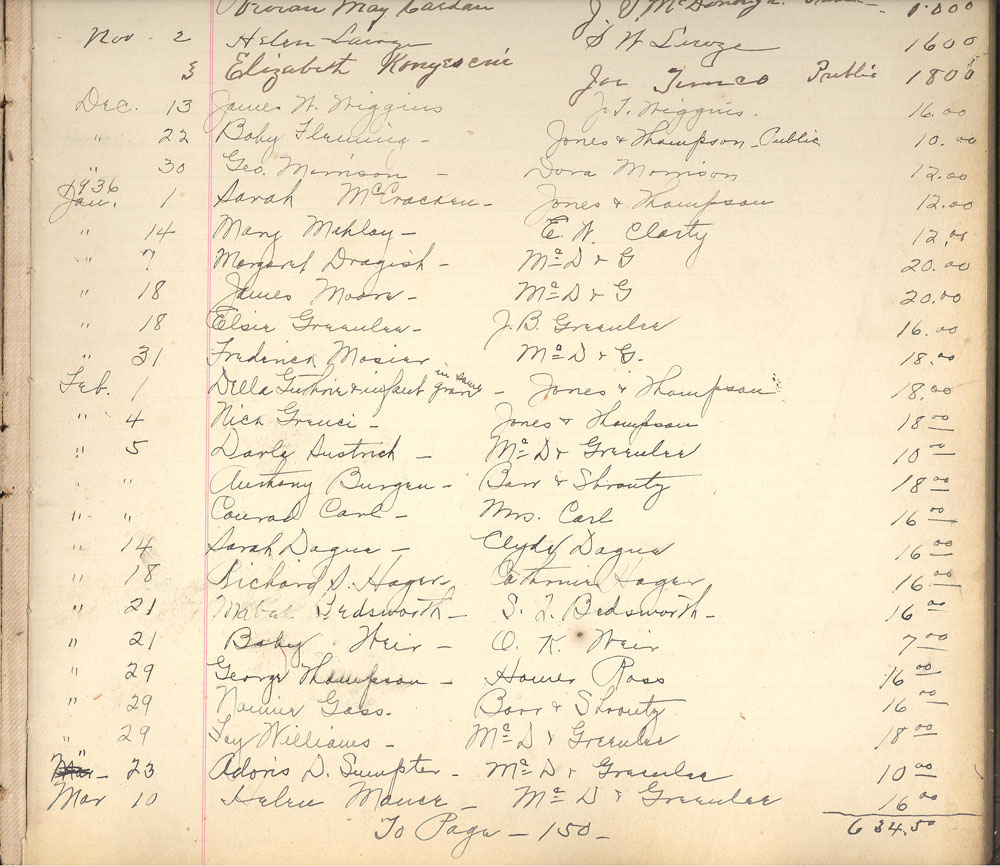 Vivian May J. V. McDonough
Nov. 2 Helen Lawze S W Lewze 16 00
3 Elizabeth Joe Public 18 00
Dec. 13 James W. Wiggins J. T. Wiggins. 16.00
" 22 Baby Fleming - Jones & Thompson - Public 10.00
" 30 Geo. Morrison - Dora Morrison 12.00
1936
Jan. 1 Sarah McCracken - Jones & Thompson 12.00
" 14 Mary - E. W. Clarty 12.00
" 7 Margaret Dragish - McD & G 20.00
" 18 James Moore - McD & G 20.00
" 18 Elsie Greenlee - J. B. Greenlee 16.00
" 31 Frederick Mosier McD & G. 18.00
Feb. 1 Della Guthrie & infant in same grave - Jones & Thompson 18.00
" 4 Nick Grenci - Jones & Thompson 18 00
" 5 Darla - McD & Greenlee 10 00
" " Anthony Burgen - Barr & Shroutz 18 00
" " Conrad Carl - Mrs. Carl 16 00
" 14 Sarah Dague - Clyde Dague 16 00
" 18 Richard S. Hager Catherine Hager 16 00
" 21 Mabal Bedsworth - S. L. Bedsworth - 16 00
" 21 Baby Weir - O. K. Weir 7 00
" 29 George Thompson - Homer Ross 16 00
" 29 Gass. Barr & Shroutz 16 00
" 29 Fay Williams - McD & Greenlee 18 00
" 23 Adoris D. Sumpter - McD & Greenlee 10 00
Mar 10 Helen Mauer - McD & Greenlee 16 00
To Page - 150 - 634.50